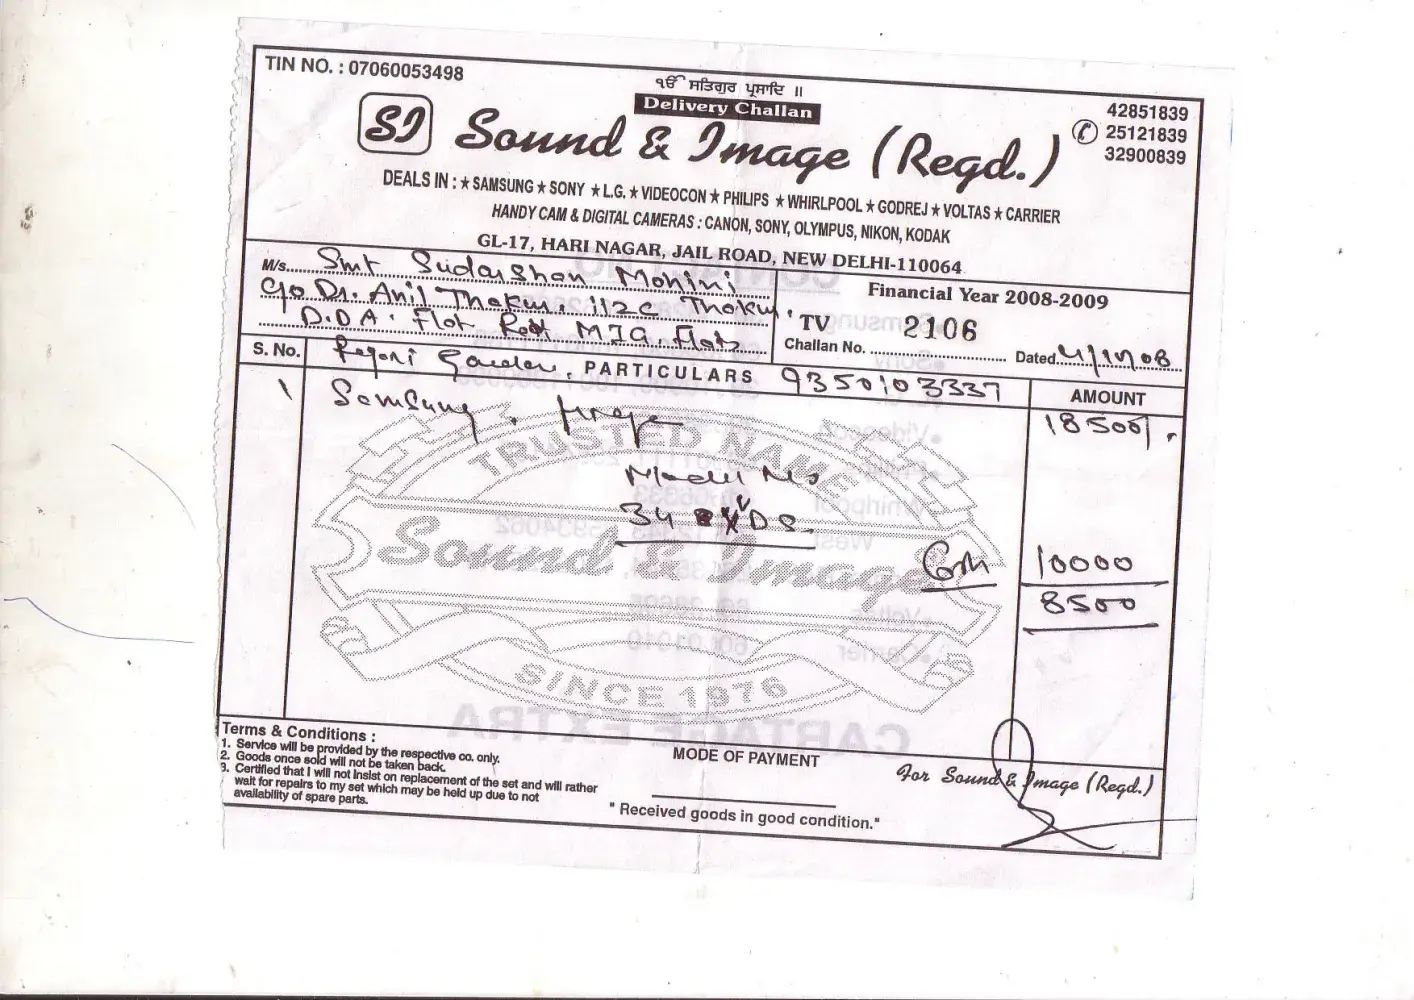 TIN NO. : 07060053498
ੴ ਸਤਿਗੁਰ ਪ੍ਰਸਾਦਿ ॥
Delivery Challan
42851839
25121839
32900839
SI Sound & Image (Regd.)
DEALS IN : ★ SAMSUNG ★ SONY ★ L.G. ★ VIDEOCON ★ PHILIPS ★ WHIRLPOOL ★ GODREJ ★ VOLTAS ★ CARRIER
HANDY CAM & DIGITAL CAMERAS : CANON, SONY, OLYMPUS, NIKON, KODAK
GL-17, HARI NAGAR, JAIL ROAD, NEW DELHI-110064
M/s. Smt Sudarshan Mohini
C/o Dr. Anil Thakur, 112C Thakur
D.D.A. Flat MIG Flats
Financial Year 2008-2009
TV 2106
Challan No. Dated
S. No. Rajori Garden, PARTICULARS 9350103337 AMOUNT
1 Samsung 18500/
Model No
34 DS
TRUSTED NAME
Sound & Image
SINCE 1976
Cash 10000
8500
CARTAGE EXTRA
Terms & Conditions :
1. Service will be provided by the respective co. only.
2. Goods once sold will not be taken back.
3. Certified that I will not insist on replacement of the set and will rather
wait for repairs to my set which may be held up due to not
availability of spare parts.
MODE OF PAYMENT
" Received goods in good condition."
For Sound & Image (Regd.)